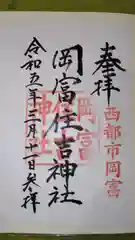 奉拝
西都市岡富
岡富住吉神社
岡富
神社
令和五年三月十二日参拝